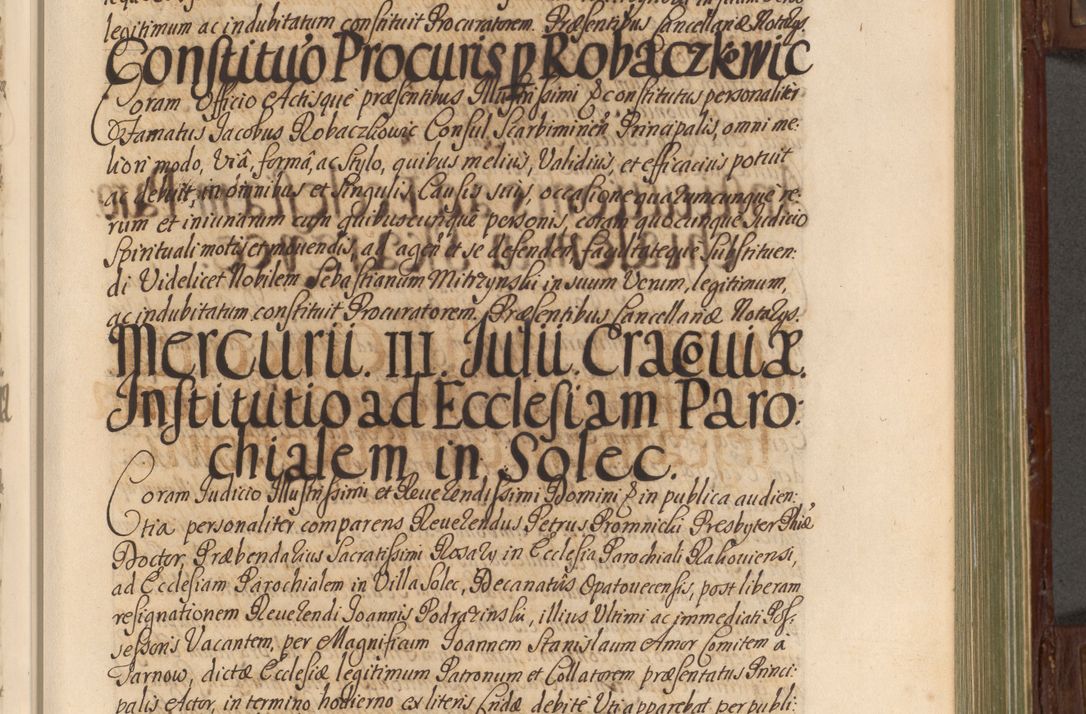 legitimum ac indubitatum constituit Procuratorem. Præsentibus Cancellariæ Notarys.
Constituo Procuris p Robaczkowic
Coram Officio Actisque præsentibus Illustrissimi & constitutus personaliter
Famatus Jacobus Robaczkowic Consul Scarbimirien Principalis, omni me:
liori modo, Viâ, formâ, ac stylo, quibus melius, Validius, et efficacius potuit
ac debuit, in omnibus et singulis Causis suis, occasione quarumcunque re:
rum et iniuriarum cum quibuscunque personis, coram quocunque Iudicio
Spirituali motis et movendis, ad agen et se defenden, facultateque substituen:
di Videlicet Nobilem Sebastianum Mitrzynski in suum Verum, legitimum,
ac indubitatum constituit Procuratorem. Præsentibus Cancellariæ Notarys.
Mercurii. III. Julii. Cracoviæ.
Institutio ad Ecclesiam Paro:
chialem in Solec.
Coram Iudicio Illustrissimi et Reverendissimi Domini & in publica audien:
tia personaliter comparens Reverendus Petrus Promnicki Presbyter Phiæ
Doctor, Præbendarius Sacratissimi Rosary in Ecclesia Parochiali Rakoviensi,
ad Ecclesiam Parochialem in Villa Solec, Decanatûs Opatovecensis, post liberam
resignationem Reverendi Joannis Podrazinski, illius Ultimi ac immediati Pos-
sessoris Vacantem, per Magnificum Joannem Stanislaum Amor Comitem à
Tarnow, dictæ Ecclesiæ legitimum Patronum et Collatorem præsentatus Princi:
palis Actor, in termino hodierno ex literis Cridæ debitè Uti apparebat per publi: